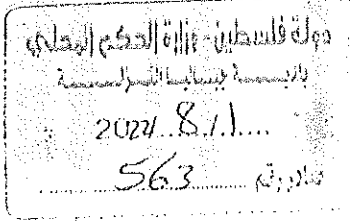 دولة فلسطين - وزارة الحكم المحلي
بلدية
2024/8/1
صادر رقم 563